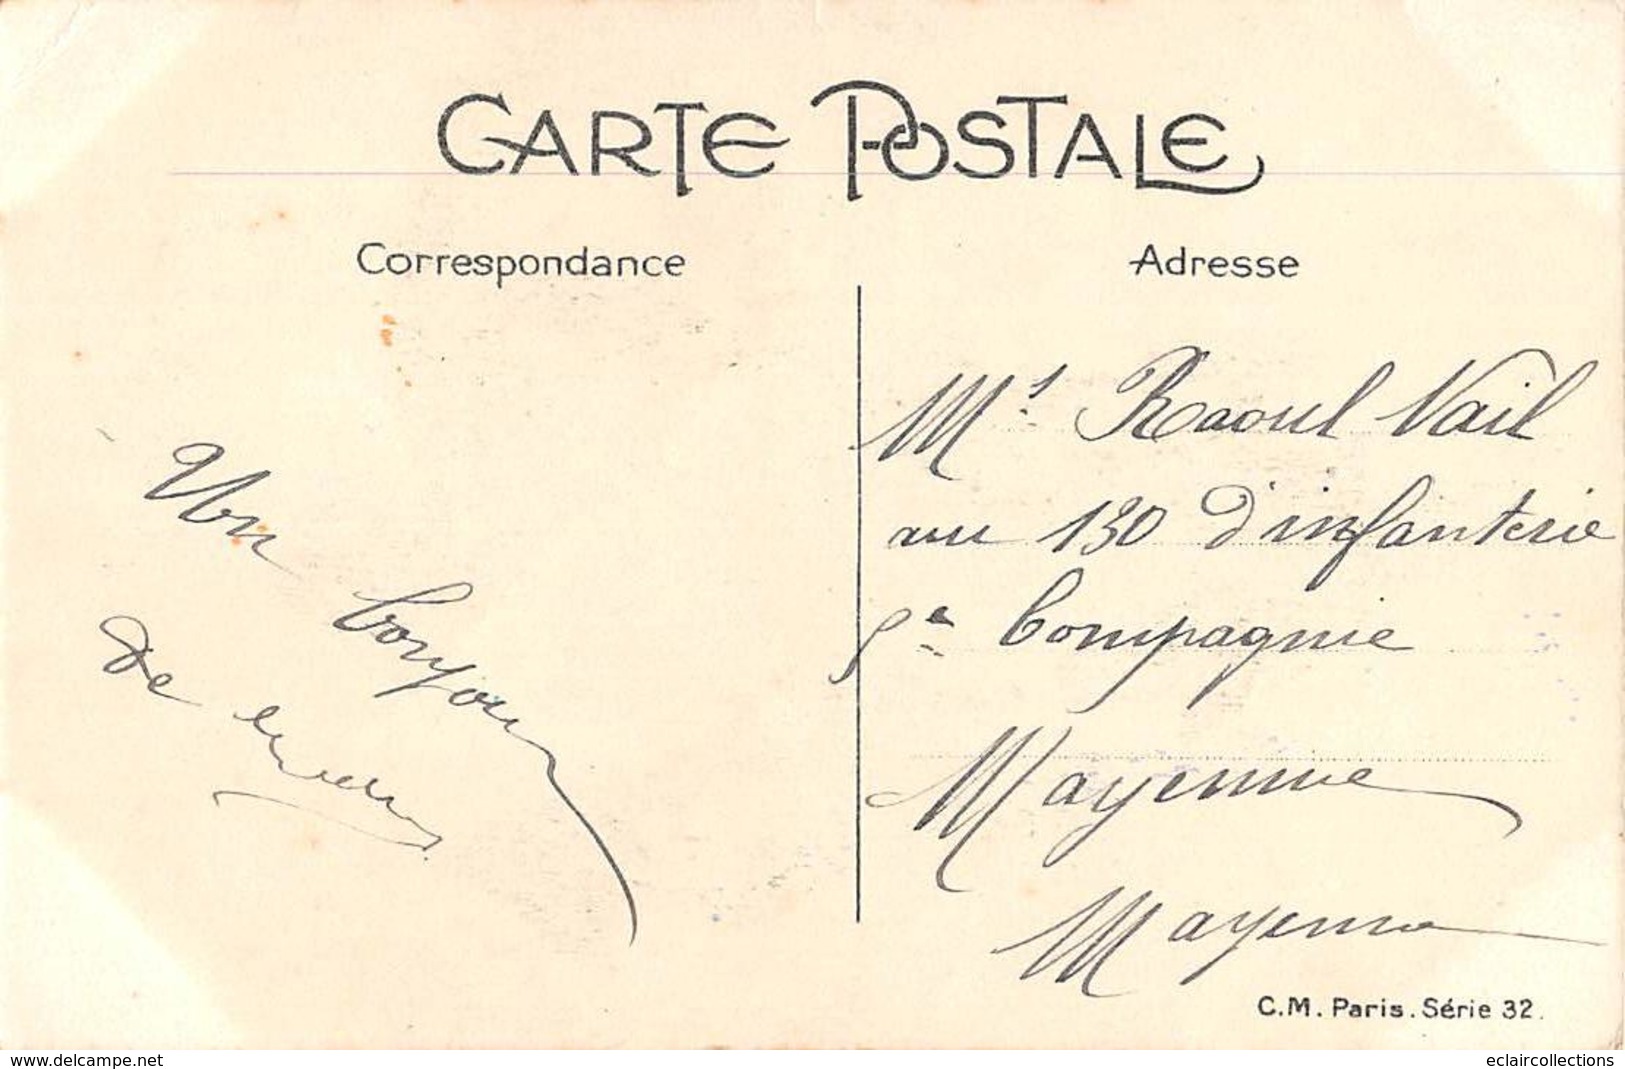 CARTE POSTALE
Correspondance
Adresse
Un bonjour
de
Mr. Raoul Vail
au 130 d'infanterie
5e Compagnie
Mayenne
Mayenne
C.M. Paris. Série 32.
www.delcampe.net
eclaircollections